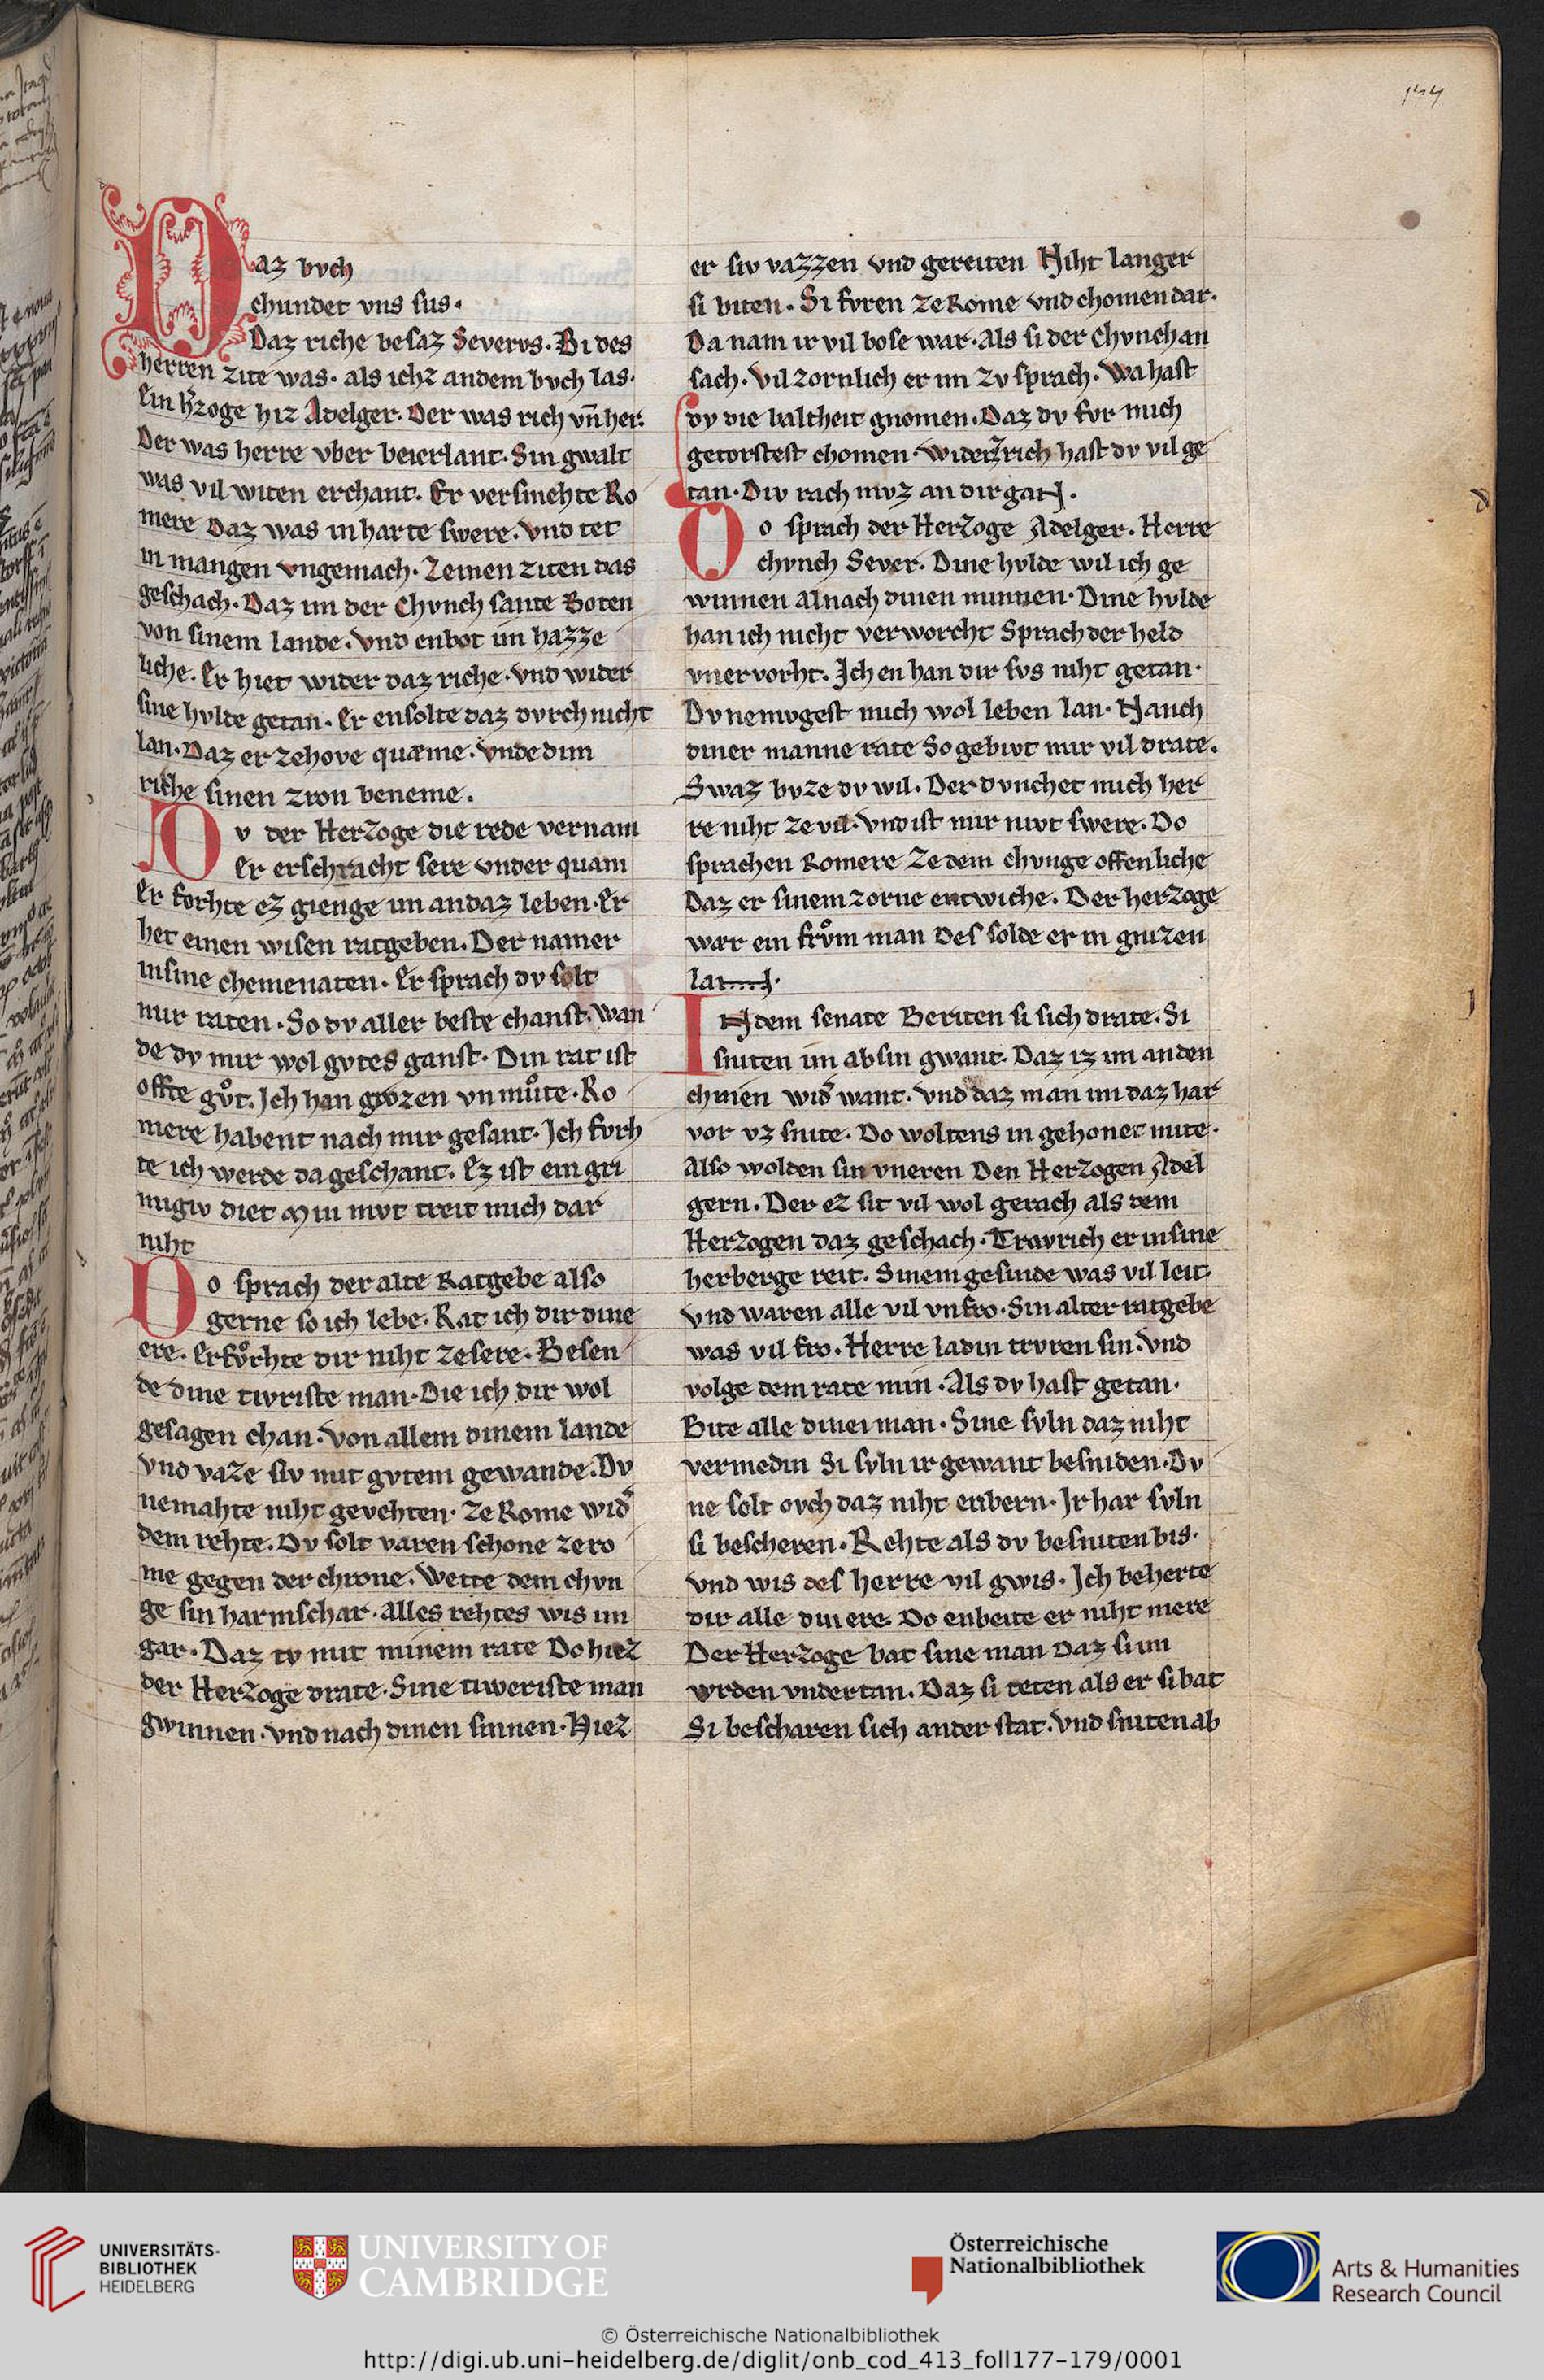 177
Daz bvch
chundet vns sus.
Daz riche besaz Severvs. Bi des
herren zite was. als ichz andem bvch las.
Ein h'zoge hiz Adelger. Der was rich vn̄ her.
Der was herre vber beierlant. Sin gwalt
was vil witen erchant. Er versmehte Ro
mere Daz was in harte swere. vnd tet
in mangen vngemach. Zeinen ziten das
geschach. Daz im der Chvnch sante Boten
von sinem lande. vnd enbot im hazze
liche. Er hiet wider daz riche. vnd wider
sine hvlde getan. Er ensolte daz dvrch nicht
lan. Daz er zehove quæme. vnde dim
riche sinen zron beneme.
Nv der Herzoge die rede vernam
Er erschracht sere vnder quam
Er forhte ez gienge im an daz leben. Er
het einen wisen ratgeben. Der namer
in sine chemenaten. Er sprach dv solt
mir raten. So dv aller beste chanst. wan
de dv mir wol gvtes ganst. Din rat ist
offte gv̊t. Ich han grozen vn mů̊te. Ro
mere habent nach mir gesant. Ich fvrh
te ich werde da geschant. Ez ist ein gri
migiv diet Min mvt treit mich dar
niht
Do sprach der alte Ratgebe also
gerne so ich lebe. Rat ich dir dine
ere. Erfv̊rhte dir niht ze sere. Besen
de dine tivriste man. Die ich dir wol
gesagen chan. von allem dinem lande
vnd vaze siv mit gvtem gewande. Dv
nemahte niht gevehten. Ze Rome wid'
dem rehte. Dv solt varen schone ze ro
me gegen der chrone. Wette dem chvn
ge sin harnischar. Alles rehtes wis im
gar. Daz tv mit minem rate Do hiez
der Herzoge drate. Sine tiweriste man
gwinnen. vnd nach dinen sinnen. Hiez
er siv vazzen vnd gereiten Niht langer
si biten. Si fvren ze Rome vnd chomen dar.
Da nam ir vil bose war. Als si der chvnch an
sach. vil zornlich er im zv sprach. Wa hast
dv die baltheit gnomen. Daz dv fvr mich
getorstest chomen. widerz rich hast dv vil ge
tan. Div rach mvz an dir gaN.
Do sprach der Herzoge Adelger. Herre
chvnch Sever. Dine hvlde wil ich ge
winnen al nach dinen minnen. Dine hvlde
han ich nicht verworcht Sprach der held
vnervorht. Ich en han dir svs niht getan.
Dv nemvgest mich wol leben lan. Nauch
diner manne rate So gebivt mir vil drate.
Swaz bvze dv wil. Der dvnchet mich her
re niht ze vil. vnd ist mir nivt swere. Do
sprachen Romere Ze dem chvnge offenliche
Daz er sinem zorne entwiche. Der herzoge
wær ein frv̊m man Des solde er in gnizen
lan.
IN dem senate Beriten si sich drate. Si
sniten im ab sin gwant. Daz iz im an den
chinen wid' want. vnd daz man im daz har
vor vz snite. Do woltens in gehonet mite.
Also wolden sin vneren Den Herzogen Adel
gern. Der ez sit vil wol gerach als dem
Herzogen daz geschach. Travrich er in sine
herberge reit. Sinem gesinde was vil leit.
vnd waren alle vil vnfro. Sin alter ratgebe
was vil fro. Herre la din trvren sin. vnd
volge dem rate min. Als dv hast getan.
Bite alle dinei man. Sine svln daz niht
vermedin Si svln ir gewant besniden. Dv
ne solt ovch daz niht enbern. Ir har svln
si bescheren. Rehte als dv besniten bis.
vnd wis des herre vil gwis. Ich beherte
dir alle din ere. Do enbeite er niht mere
Der Herzoge bat sine man Daz si im
wrden vndertan. Daz si teten als er si bat
Si bescharen sich ander stat. vnd sniten ab
UNIVERSITÄTS-
BIBLIOTHEK
HEIDELBERG
UNIVERSITY OF
CAMBRIDGE
Österreichische
Nationalbibliothek
Arts & Humanities
Research Council
© Österreichische Nationalbibliothek
http://digi.ub.uni-heidelberg.de/diglit/onb_cod_413_foll177-179/0001